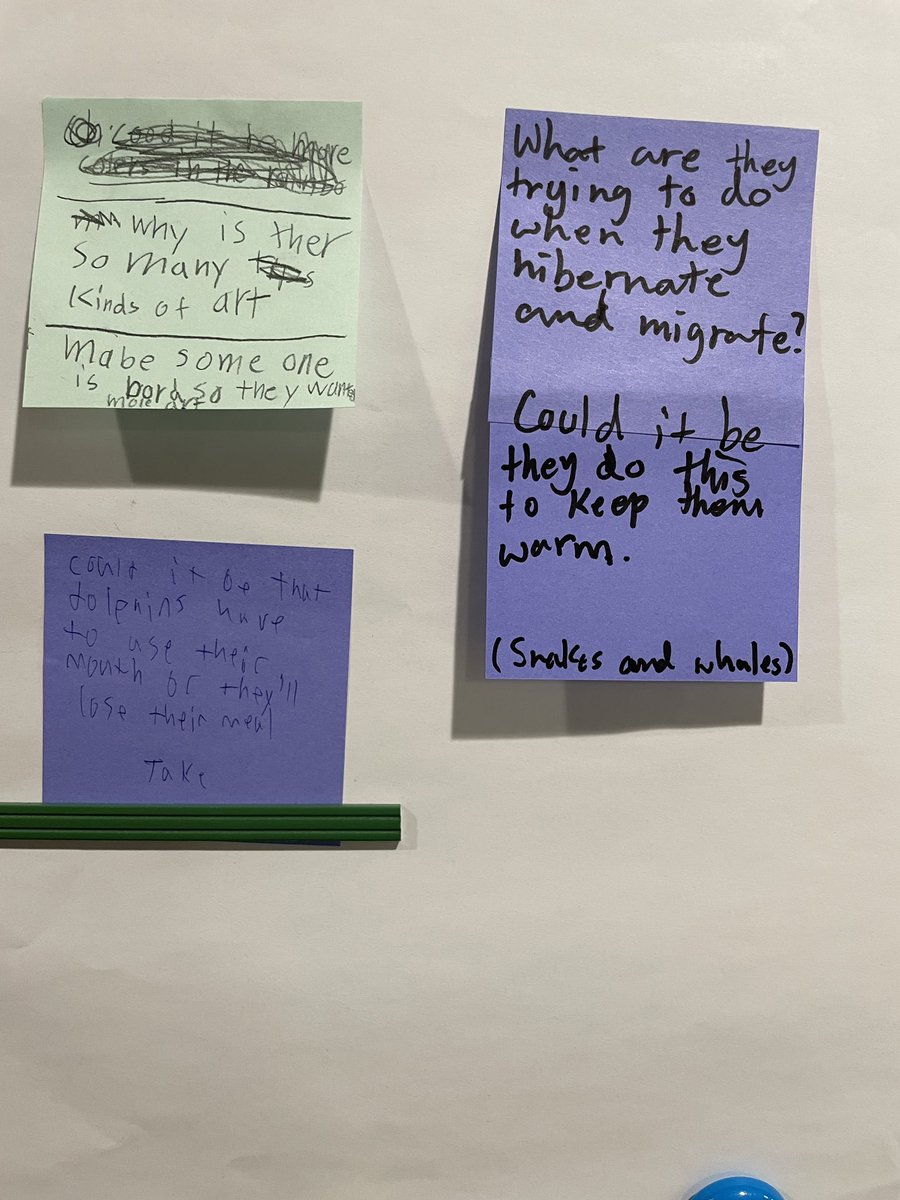 why is ther
so many
kinds of art
mabe some one
is bord so they want
more art
What are they
trying to do
when they
hibernate
and migrate?
Could it be
they do this
to keep them
warm.
(Snakes and whales)
could it be that
dolphins have
to use their
mouth or they'll
lose their meal